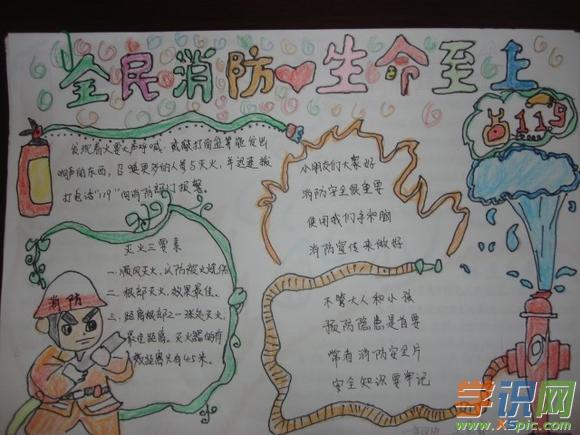 全民消防 生命至上
119
发现着火要大声呼喊，或敲打窗盆等能发出
响声的东西，召唤更多的人参与灭火，并迅速拨
打电话"119"向消防部门报警。
小朋友们大家好
消防安全很重要
使用我们手和脑
消防宣传来做好
灭火三要素
一、顺风灭火，以防被火烧伤
二、根部灭火，效果最佳。
三、距离根部2-3米处灭火，
最佳距离。灭火器的有
效距离只有4.5米。
消防
不管大人和小孩
预防隐患是首要
常看消防安全片
安全知识要牢记
学识网
www.XSpic.com